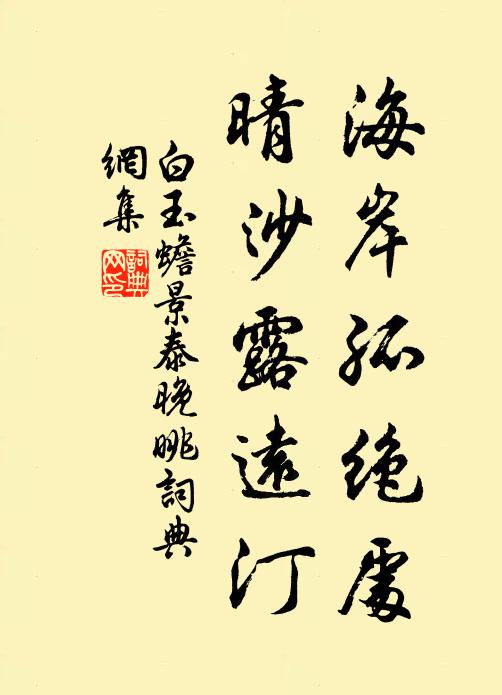 海岸孤绝處
晴沙露遠汀
白玉蟾景泰晚眺詞典
網集
詞典網印